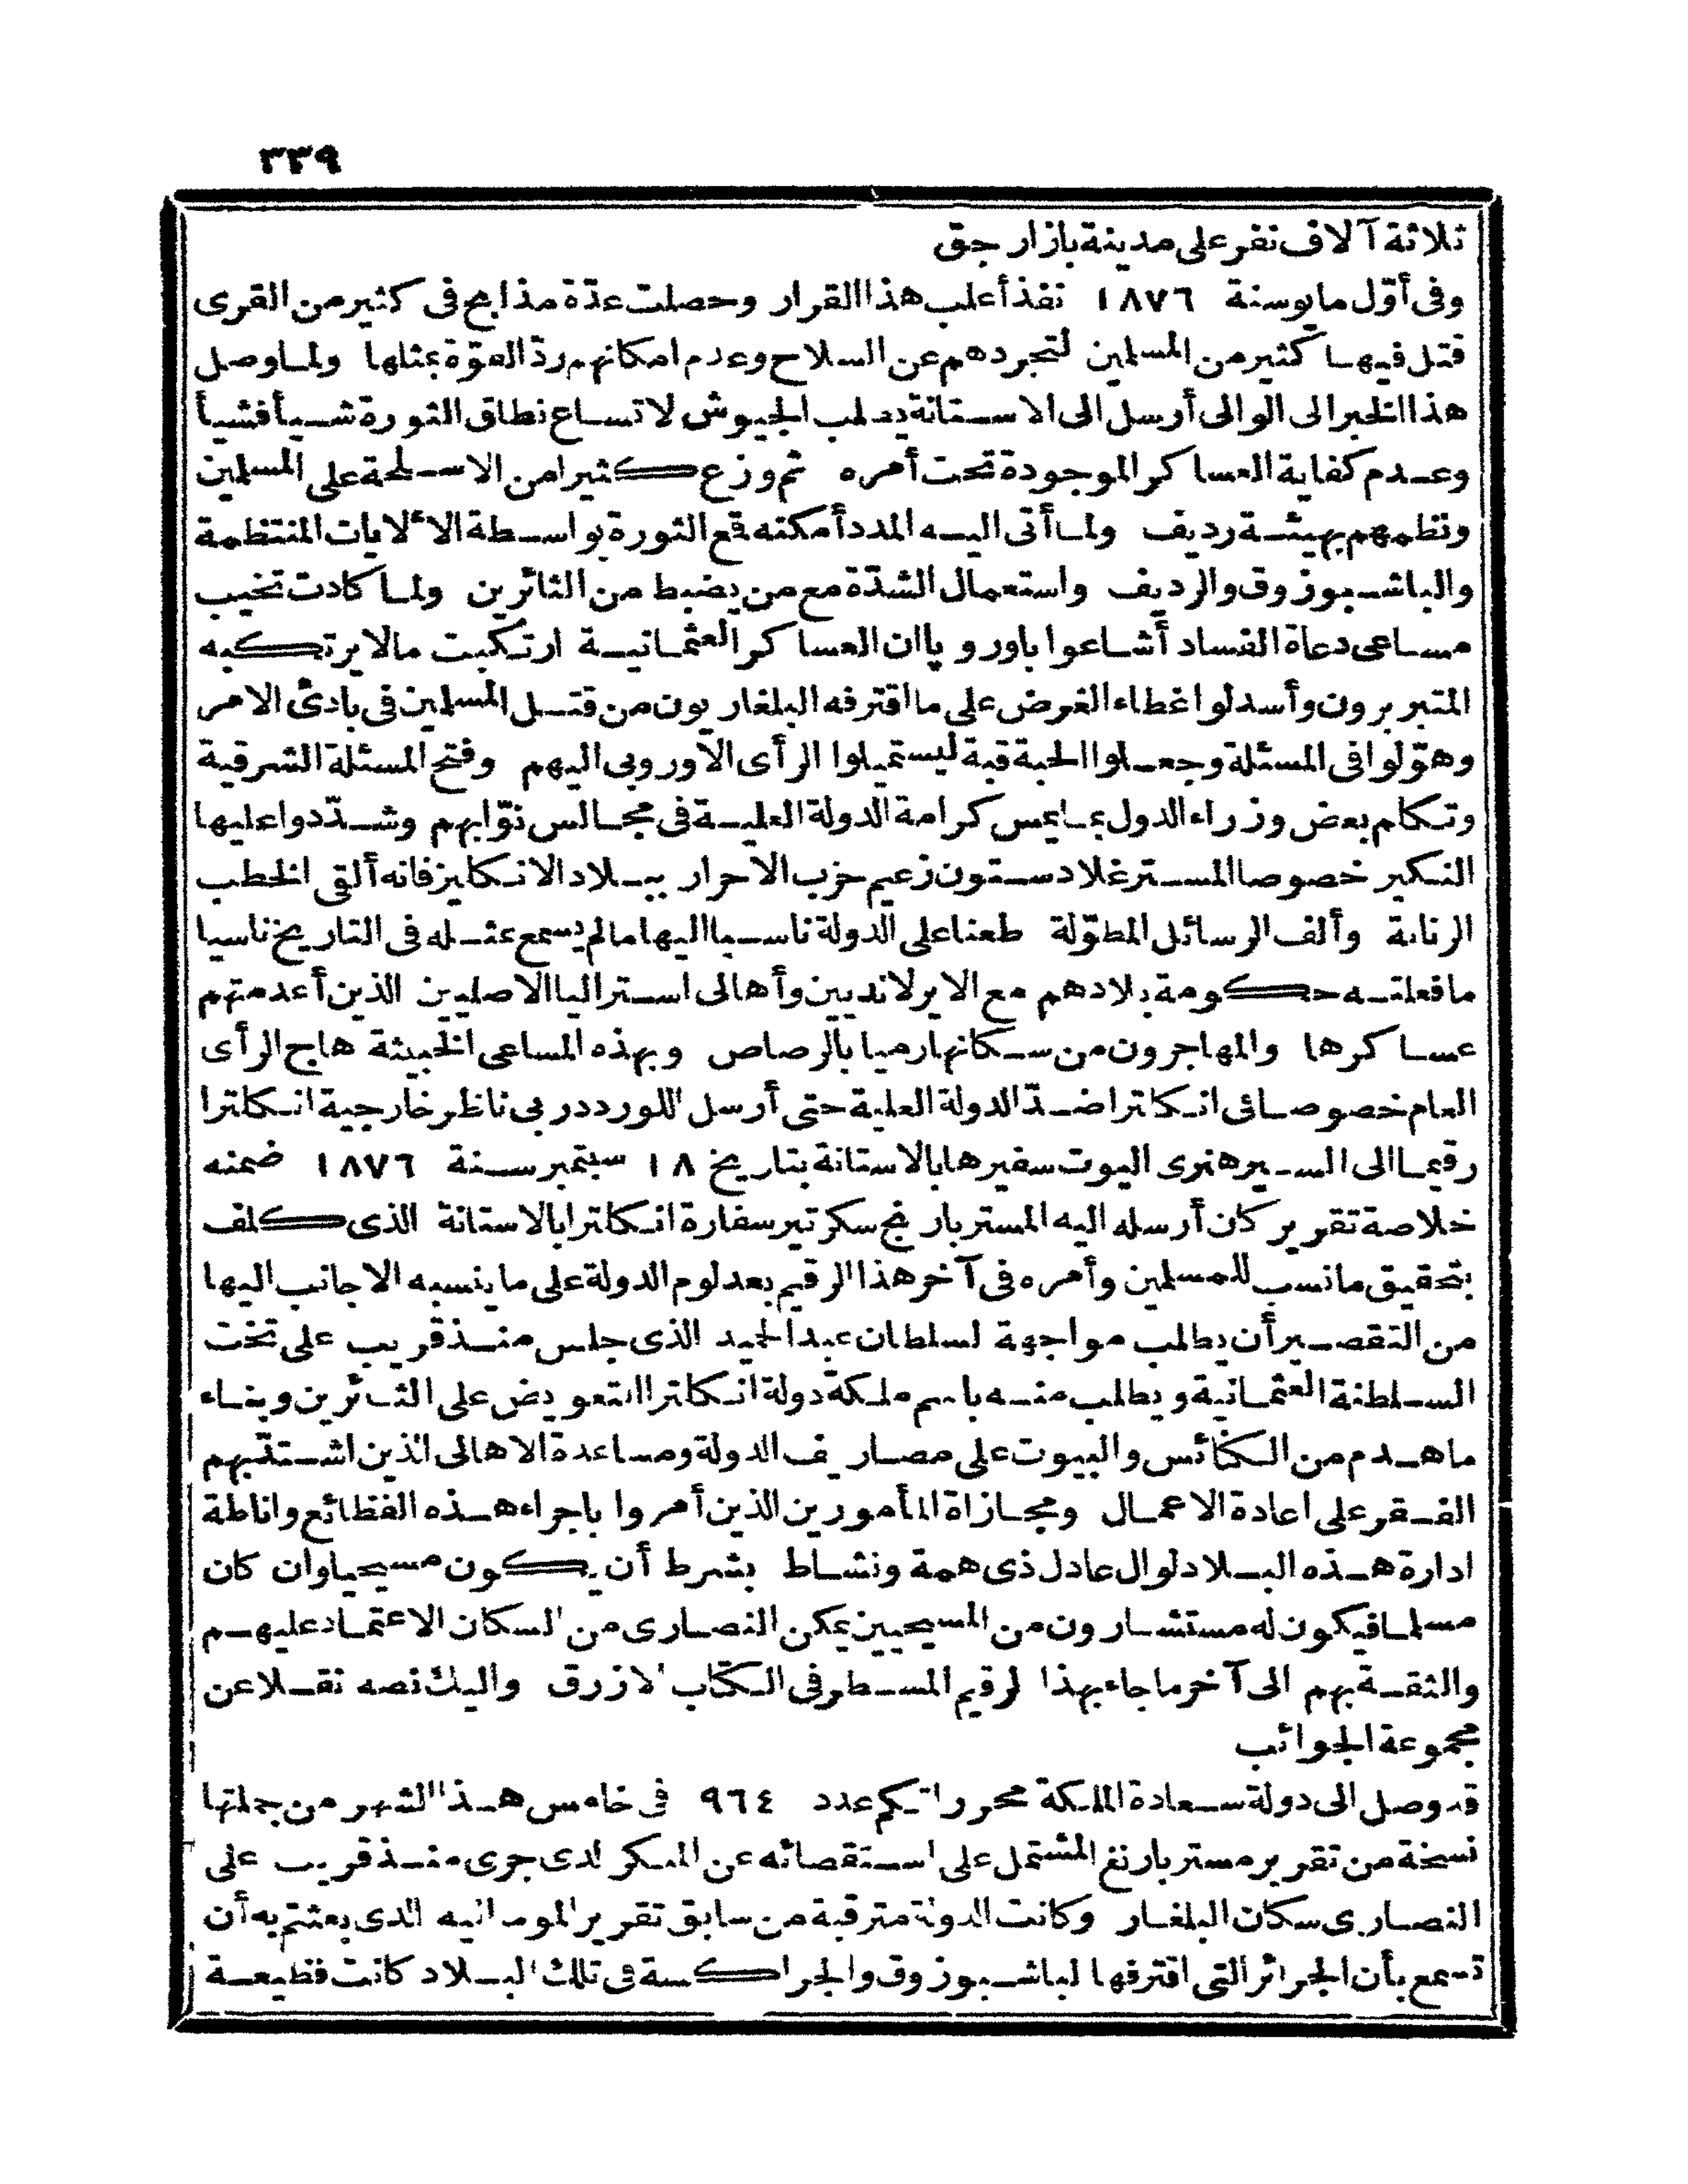 ٣٣٩
ثلاثة آلاف نفر على مدينة بازارجق
وفى أوّل مايو سنة ١٨٧٦ نفذ أغلب هذا القرار وحصلت عدّة مذابح فى كثير من القرى
قتل فيها كثير من المسلمين لتجردهم عن السلاح وعدم امكانهم ردّ القوّة بمثلها ولما وصل
هذا الخبر الى الوالى أرسل الى الاستانة يطلب الجيوش لاتساع نطاق الثورة شيأ فشيأ
وعدم كفاية العساكر الموجودة تحت أمره ثم وزع كثيرا من الاسلحة على المسلمين
ونظمهم بهيئة رديف ولما أتى اليه المدد أمكنه قمع الثورة بواسطة الألايات المنتظمة
والباشبوزوق والرديف واستعمال الشدّة مع من يضبط من الثائرين ولما كادت تخيب
مساعى دعاة الفساد أشاعوا باوروپا ان العساكر العثمانية ارتكبت مالا يرتكبه
المتبربرون وأسدلوا غطاء الغرض على ما اقترفه البلغاريون من قتل المسلمين فى بادئ الامر
وهوّلوا فى المسئلة وجعلوا الحبة قبة ليستميلوا الرأى الأوروبى اليهم وفتح المسئلة الشرقية
وتكلم بعض وزراء الدول بما يمس كرامة الدولة العلية فى مجالس نوّابهم وشدّدوا عليها
النكير خصوصا المستر غلادستون زعيم حزب الاحرار ببلاد الانكليز فانه ألقى الخطب
الرنانة وألف الرسائل المطوّلة طعنا على الدولة ناسبا اليها مالم يسمع بمثله فى التاريخ ناسيا
ما فعلته حكومة بلادهم مع الايرلانديين وأهالى استراليا الاصليين الذين أعدمتهم
عساكرها والمهاجرون من سكانها رميا بالرصاص وبهذه المساعى الخبيثة هاج الرأى
العام خصوصا فى انكاترا ضدّ الدولة العلية حتى أرسل اللورد دربى ناظر خارجية انكلترا
رقيما الى السير هنرى اليوت سفيرها بالاستانة بتاريخ ١٨ سبتمبر سنة ١٨٧٦ ضمنه
خلاصة تقرير كان أرسله اليه المستر بارنج سكرتير سفارة انكلترا بالاستانة الذى كلف
بتحقيق ما نسب للمسلمين وأمره فى آخر هذا الرقيم بعد لوم الدولة على ما ينسبه الاجانب اليها
من التقصير أن يطلب مواجهة لسلطان عبد الحميد الذى جلس منذ قريب على تخت
السلطنة العثمانية ويطلب منه باسم ملكة دولة انكلترا التعويض على الثائرين وبناء
ما هدم من الكنائس والبيوت على مصاريف الدولة ومساعدة الاهالى الذين اشتدّ بهم
الفقر على اعادة الاعمال ومجازاة المأمورين الذين أمروا باجراء هذه الفظائع واناطة
ادارة هذه البلاد لوال عادل ذى همة ونشاط بشرط أن يكون مسيحيا وان كان
مسلما فيكون له مستشارون من المسيحيين يمكن النصارى من السكان الاعتماد عليهم
والثقة بهم الى آخر ما جاء بهذا الرقيم المسطر فى الكتاب الازرق واليك نصه نقلا عن
مجموعة الجوائب
قد وصل الى دولة سعادة الملكة محرراتكم عدد ٩٦٤ فى خامس هذا الشهر من جملتها
نسخة من تقرير مستر بارنغ المشتمل على استقصائه عن المنكر الذى جرى منذ قريب على
النصارى سكان البلغار وكانت الدولة مترقبة من سابق تقرير الموما اليه الذى بعثتم به أن
تسمع بأن الجرائر التى اقترفها لباشبوزوق والجراكسة فى تلك البلاد كانت فظيعة